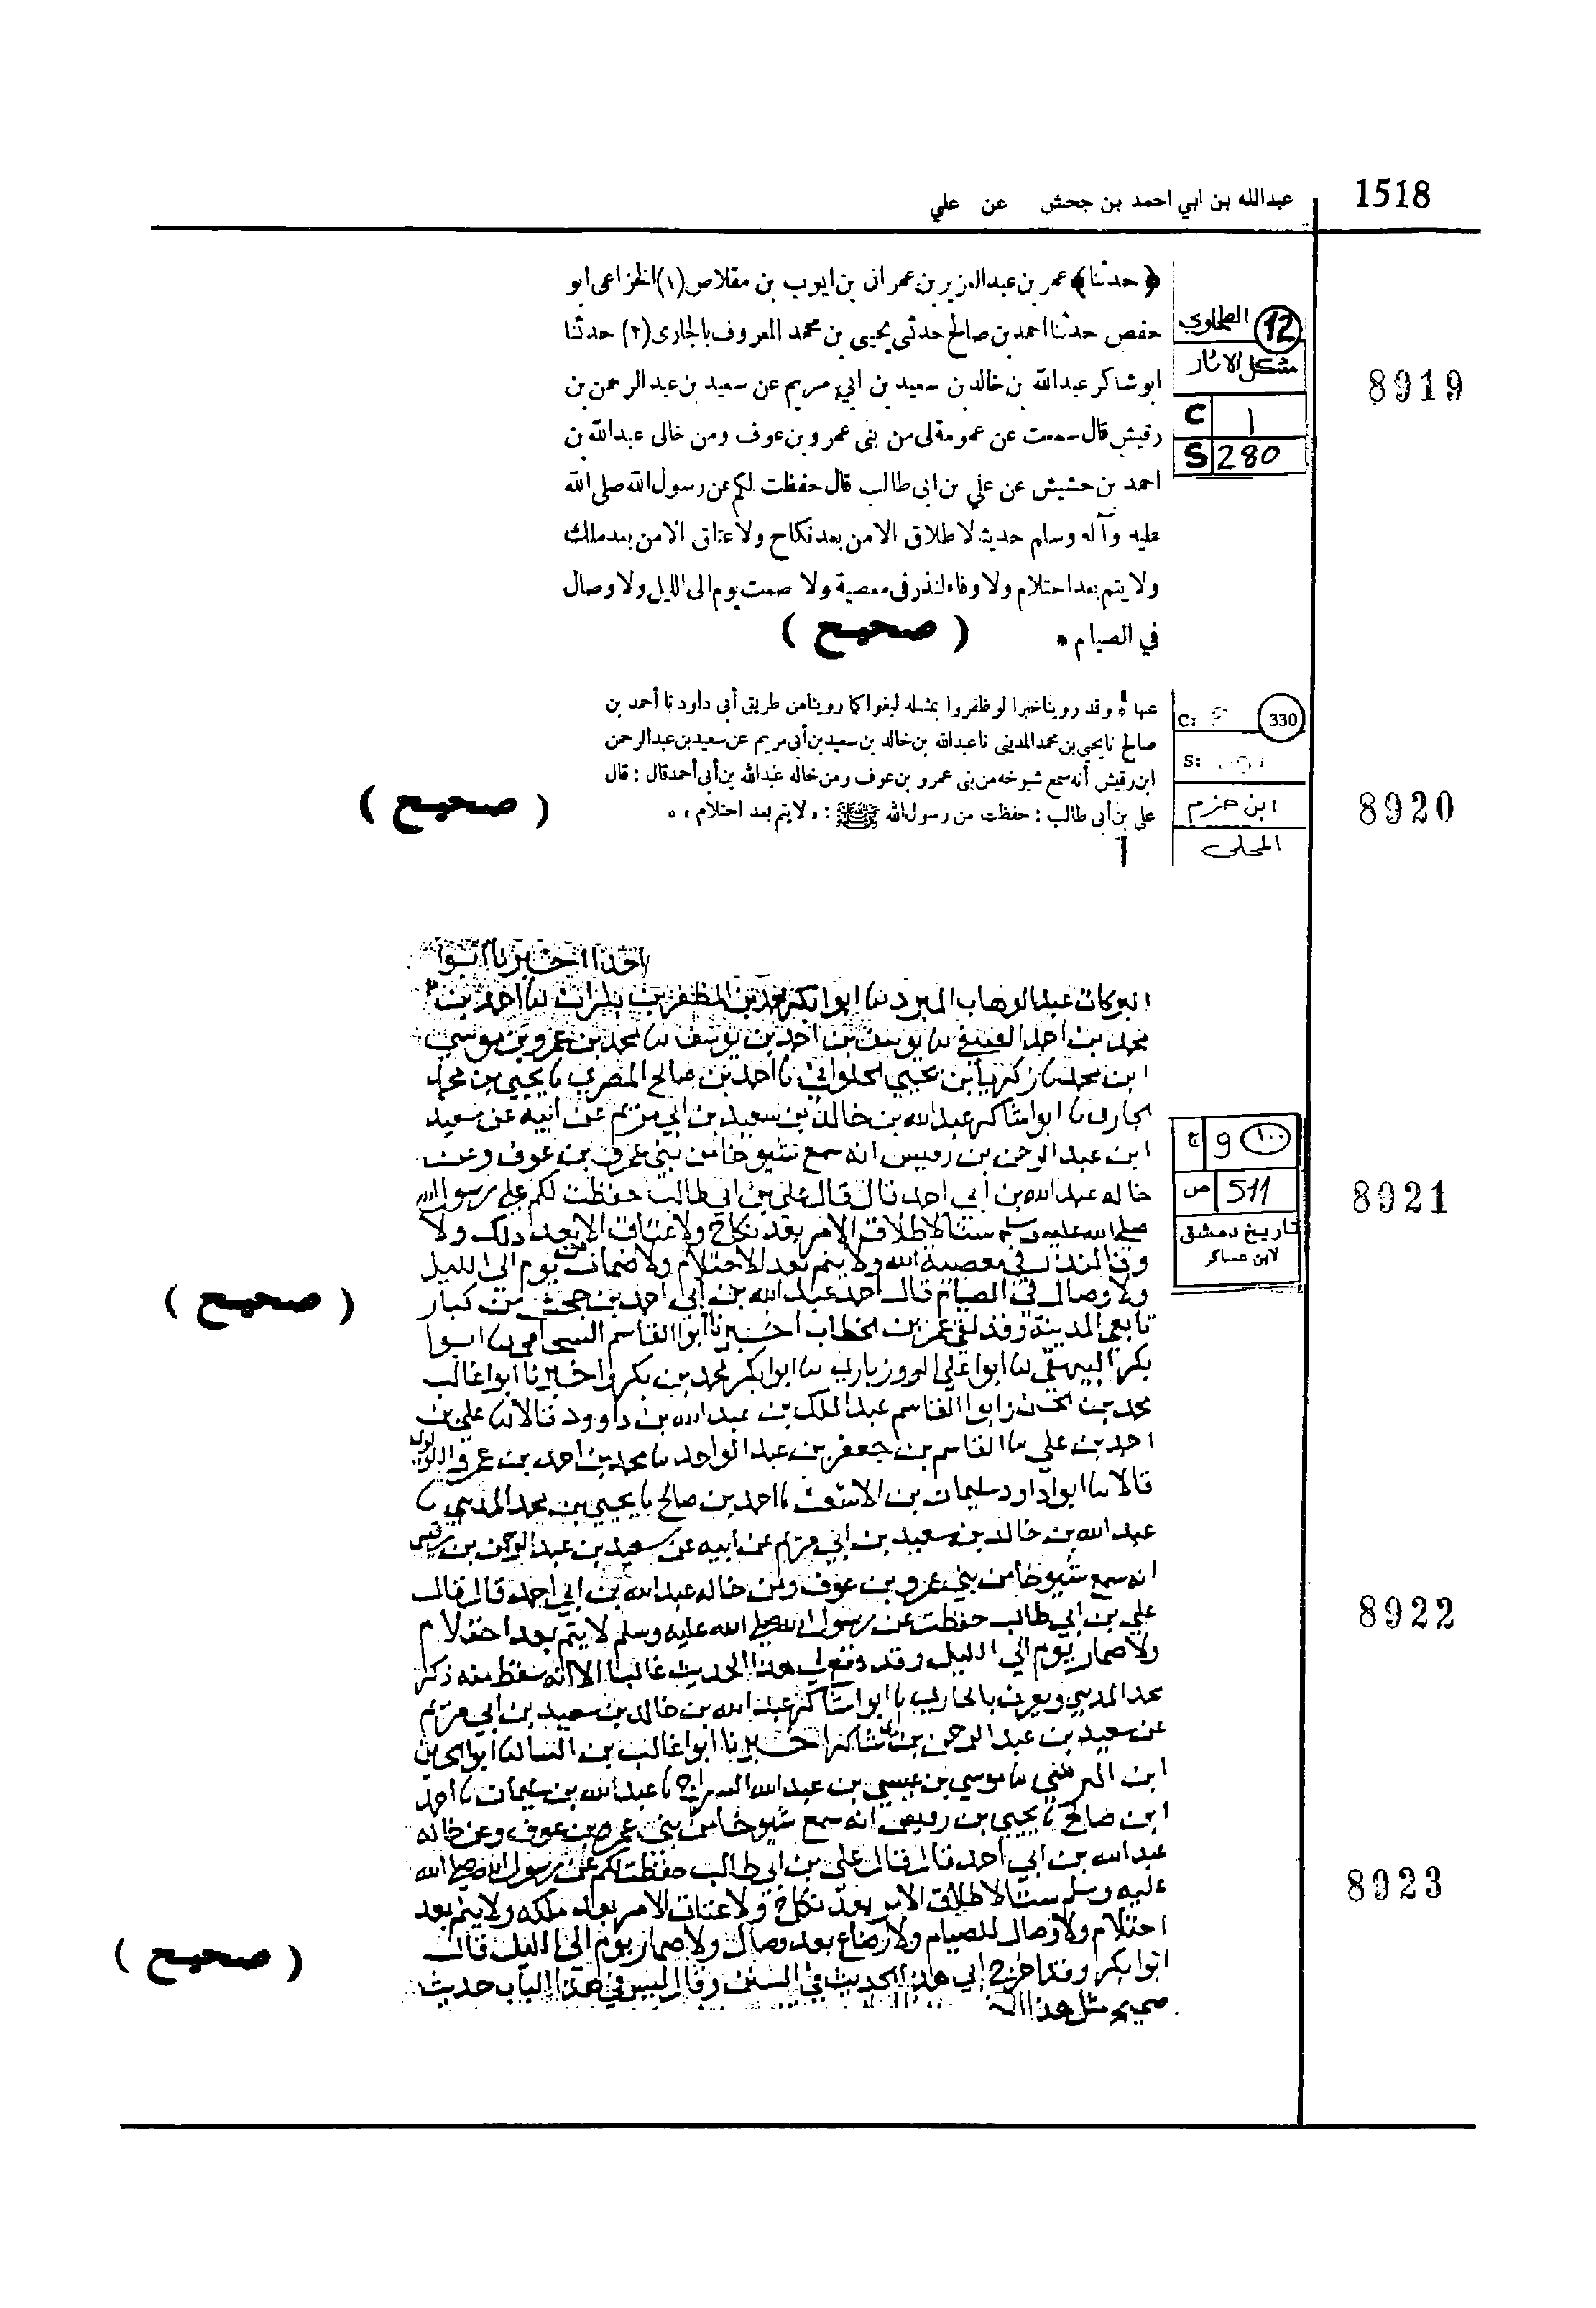 1518
عبدالله بن ابي احمد بن جحش عن علي
﴿ حدثنا ﴾ عمر بن عبدالعزيز بن عمران بن ايوب بن مقلاص (١) الخزاعى ابو
حفص حدثنا احمد بن صالح حدثى يحيى بن محمد المعروف بالجارى (٢) حدثنا
ابو شاكر عبدالله بن خالد بن سعيد بن ابي مريم عن سعيد بن عبد الرحمن بن
رقيش قال سمعت عن عمومة لى من بنى عمرو بن عوف ومن خالى عبدالله بن
احمد بن حشيش عن علي بن ابى طالب قال حفظت لكم عن رسول الله صلى الله
عليه وآله وسلم حديث لا طلاق الا من بعد نكاح ولا عتاق الا من بعد ملك
ولا يتم بعد احتلام ولا وفاء لنذر فى معصية ولا صمت يوم الى الليل ولا وصال
في الصيام *
( صحيح )
12 الطحاوي
مشكل الاثار
C 1
S 280
8919
عنها ه وقد روينا خبرا لو ظفروا بمثله لبغوا كما روينا من طريق أبى داود نا أحمد بن
صالح نا يحيى بن محمد المدينى نا عبدالله بن خالد بن سعيد بن أبى مريم عن سعيد بن عبدالرحمن
ابن رقيش أنه سمع شيوخه من بنى عمرو بن عوف ومن خاله عبدالله بن أبى أحمد قال : قال
على بن أبى طالب : حفظت من رسول الله ﷺ : « لا يتم بعد احتلام » ه
( صحيح )
C: 330
S:
ابن حزم
المحلى
8920
اخبرنا ابوا
البركات عبد الوهاب المبرد ابوا بكر بن المظفر بن احمد بن
محمد بن احمد يوسف بن احمد بن يوسف محمد بن عمرو بن موسى
ابن محمد زكريا بن يحيي الحلواني احمد بن صالح المصري يحيي بن محمد
الجارى نا ابوا شاكر عبد الله بن خالد بن سعيد بن ابي مريم عن ابيه عن سعيد
ابن عبد الرحمن بن رميس انه سمع شيوخا من بني عمرو بن عوف وعن
خاله عبد الله بن أبي احمد قال قال علي بن ابي طالب حفظت لكم على رسول الله
صلى الله عليه وسلم ستا لا طلاق الا من بعد نكاح ولا عتاق الا بعد ذلك ولا
في معصية الله ولا يتم بعد الاحتلام ولا يوم الى الليل
ولا وصال في الصيام قال احمد عبد الله بن ابي احمد بن جحش من كبار
تابعي المدينة وقد لقي عمر بن الخطاب اخبرنا ابوا القاسم السحامي ابوا
بكر البيهقي ابوا علي الروزباري ابوا بكر محمد بن بكر واخبرنا ابوا غالب
محمد بن ابوا القاسم عبد الملك بن عبد الله بن داوود قالا علي بن
احمد بن علي القاسم بن جعفر بن عبد الواحد محمد بن احمد بن عمرو
قالا ابوا داود سليمان بن الاشعث احمد بن صالح يحيي بن محمد المديني
عبد الله بن خالد بن سعيد بن ابي مريم عن ابيه عن سعيد بن عبد الرحمن بن رقيش
انه سمع شيوخا من بني عمرو بن عوف ومن خاله عبد الله بن ابي احمد قال قال
علي بن ابي طالب حفظت عن رسول الله صلى الله عليه وسلم لا يتم بعد احتلام
ولا صمات يوم الي الليل وقد وقع لي هذا الحديث غالبا الا انه سقط منه ذكر
محمد المديني ويعرف بالجاري نا ابوا شاكر عبد الله بن خالد بن سعيد بن ابي مريم
عن سعيد بن عبد الرحمن بن اخبرنا ابوا غالب بن البنا
ابن موسي بن عيسي بن عبد الله السراج نا عبد الله بن سليمان نا احمد
ابن صالح نا يحيي بن رميس انه سمع شيوخا من بني عمرو بن عوف وعن خاله
عبد الله بن ابي احمد قال قال علي بن ابي طالب حفظت لكم عن رسول الله صلى الله
عليه وسلم ستا لا طلاق الا من بعد نكاح ولا عتاق الا من بعد ملكه ولا يتم بعد
احتلام ولا وصال للصيام ولا رضاع بعد وصال ولا صمات يوم الى الليل قال
ابوا بكر وقد اخرج ابي هذا الحديث في السنن وقال ليس في هذا الباب حديث
صحيح مثل هذا
ج 9 ١٠٠
ص 511
تاريخ دمشق
لابن عساكر
8921
( صحيح )
8922
8923
( صحيح )